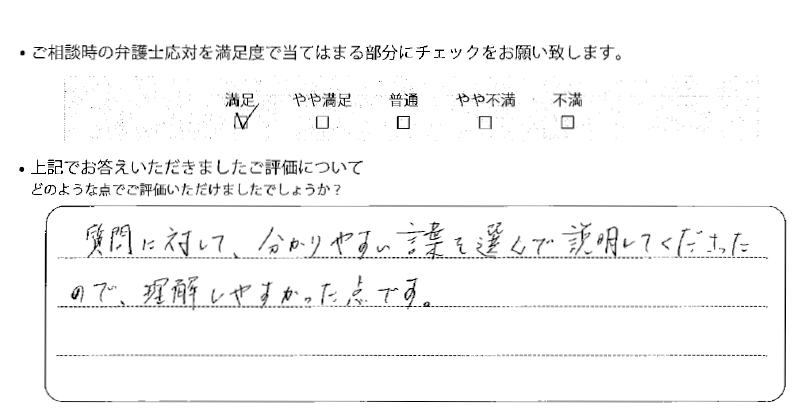 ・ご相談時の弁護士応対を満足度で当てはまる部分にチェックをお願い致します。
満足 やや満足 普通 やや不満 不満
☑ □ □ □ □
・上記でお答えいただきましたご評価について
どのような点でご評価いただけましたでしょうか？
質問に対して、分かりやすい言葉を選んで説明してくださった
ので、理解しやすかった点です。